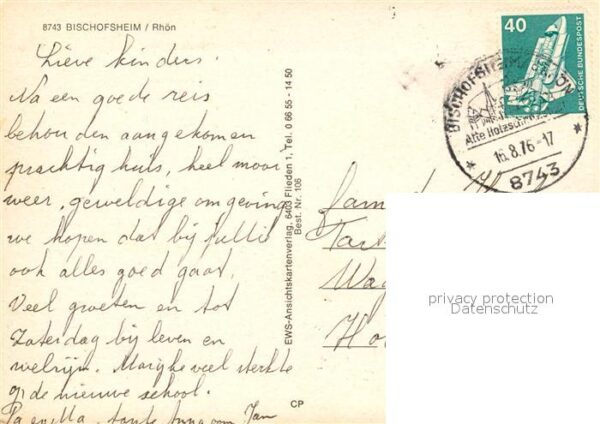 8743 BISCHOFSHEIM / Rhön
Lieve kinders.
Na een goede reis
behouden aangekomen
prachtig huis, heel mooi
weer, geweldige omgeving
we hopen dat bij jullie
ook alles goed gaat.
Veel groeten en tot
Zaterdag bij leven en
welzijn. Marijke veel sterkte
op de nieuwe school.
Pa en Ma, tante Anna oom Jan
EWS-Ansichtskartenverlag, 6403 Flieden 1, Tel. 0 66 55 - 14 50
Best. Nr. 106
CP
40
DEUTSCHE BUNDESPOST
BISCHOFSHEIM RHÖN
Alte Holzschnitz
16.8.76-17
8743
Fam
Ho
privacy protection
Datenschutz